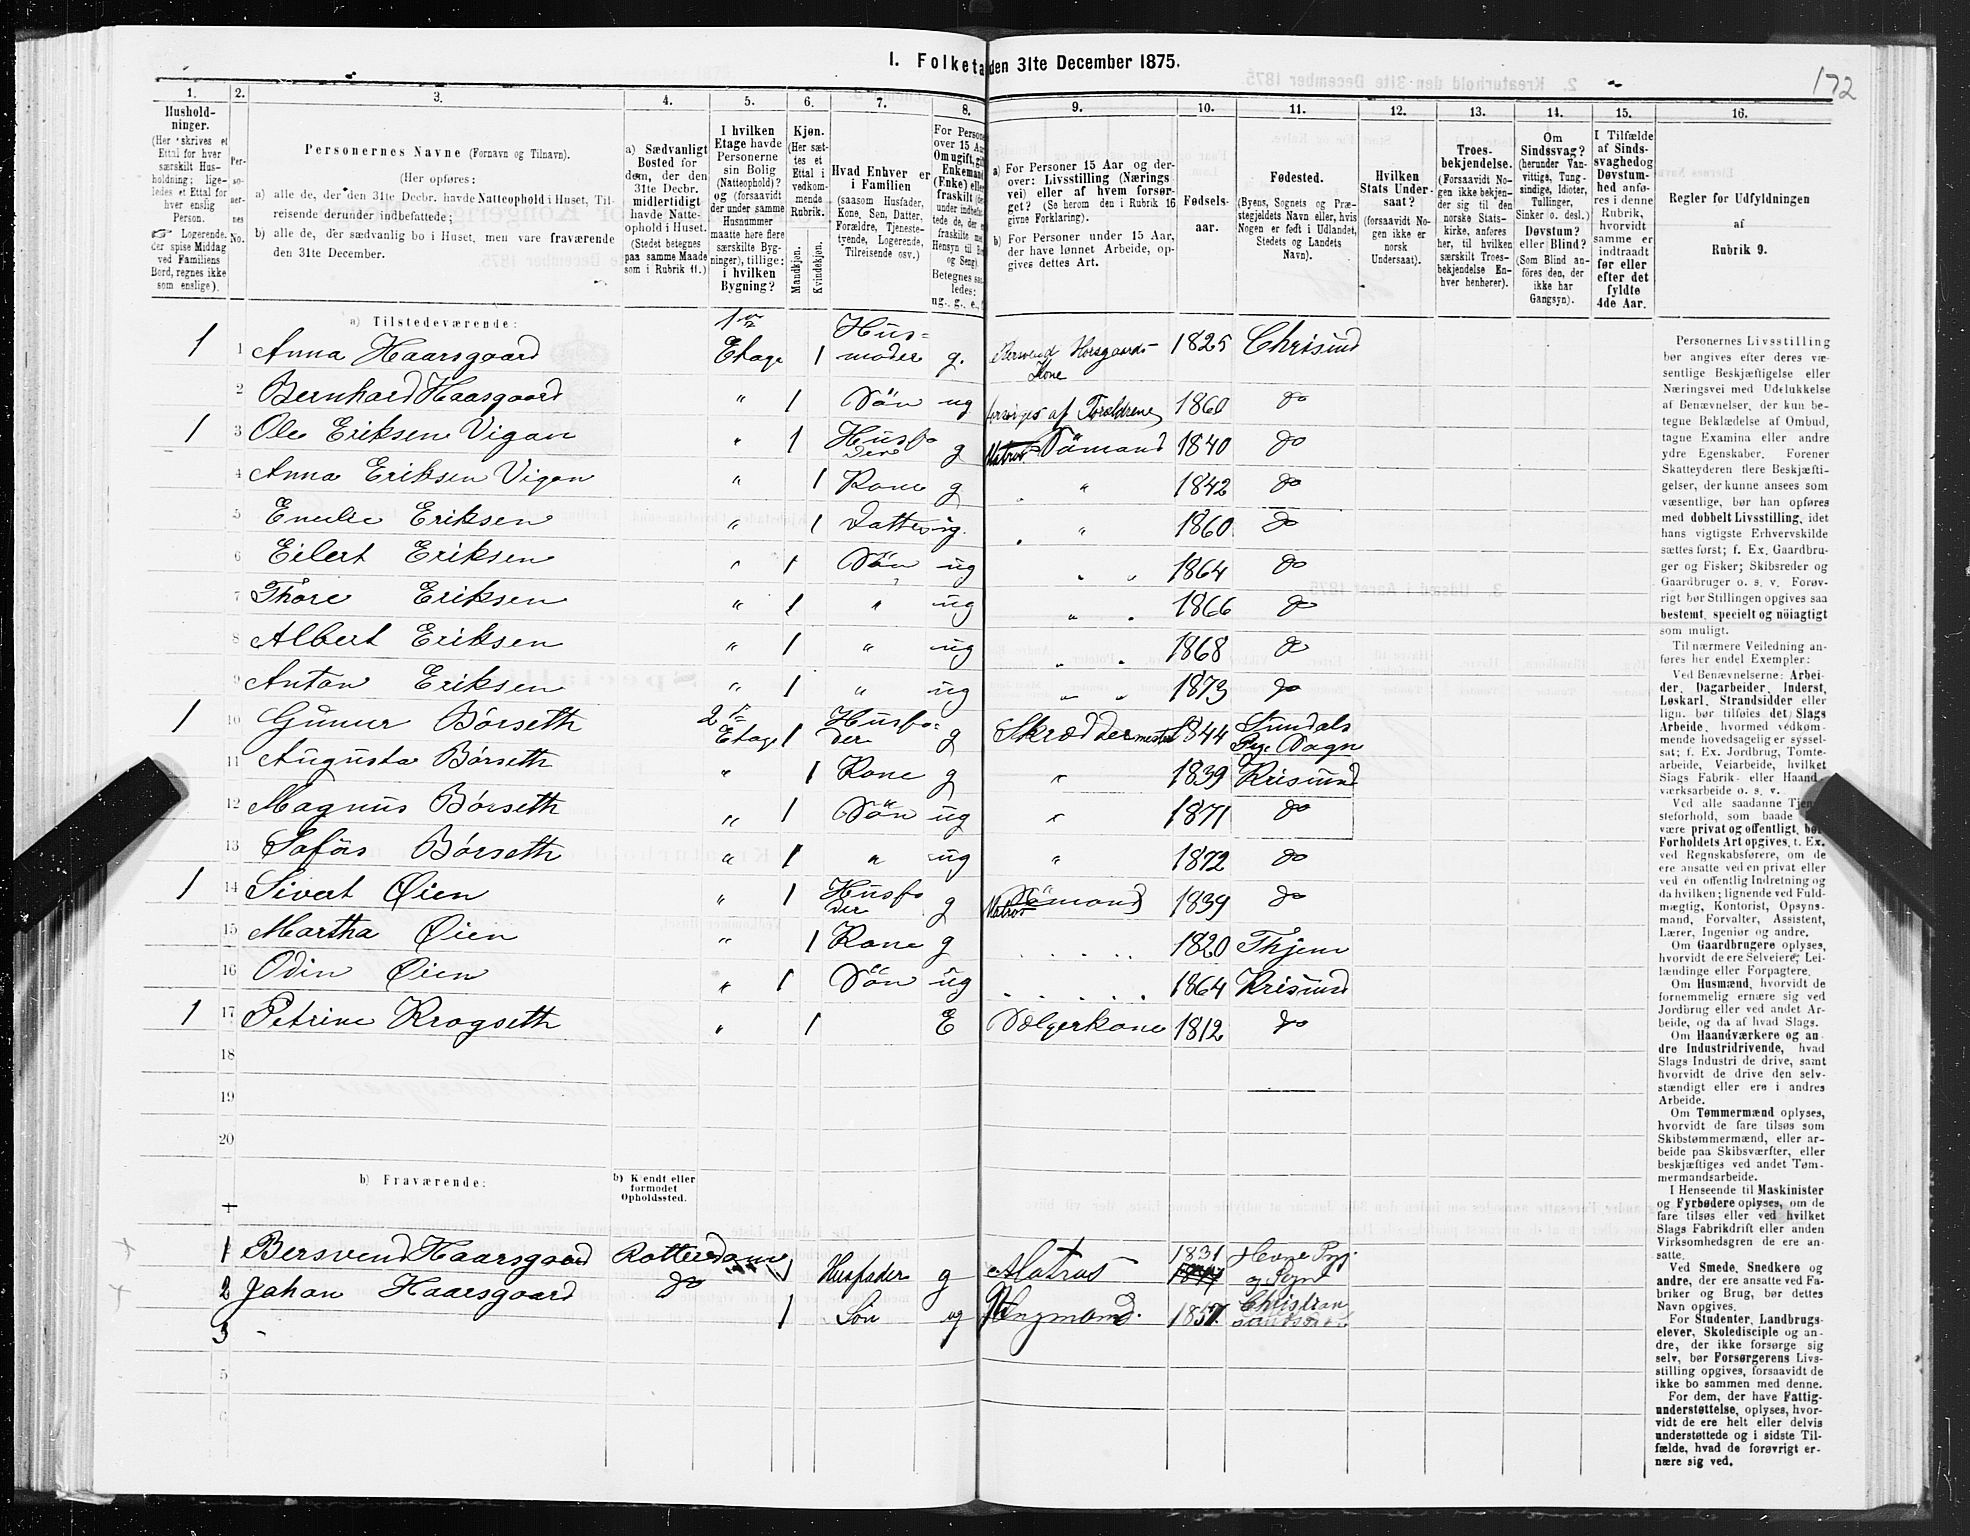 I. Folketæ den 31te December 1875.
172
1. 2. 3. 4. 5. 6. 7. 8. 9. 10. 11. 12. 13. 14. 15. 16.
Hushold-
ninger.
(Her skrives et
Ettal for hver
særskilt Hus-
holdning; lige-
ledes et Ettal for
hver enslig
Person.
Logerende,
der spise Middag
ved Familiens
Bord, regnes ikke
som enslige).
Per-
so-
ner-
nes
No.
Personernes Navne (Fornavn og Tilnavn).
(Her opføres:
a) alle de, der den 31te Decbr. havde Natteophold i Huset, Til-
reisende derunder indbefattede;
b) alle de, der sædvanlig bo i Huset, men vare fraværende
den 31te December.
a) Sædvanligt
Bosted for
dem, der den
31te Decbr.
midlertidigt
havde Natte-
ophold i Huset.
(Stedet betegnes
paa samme Maade
som i Rubrik 11.)
I hvilken
Etage havde
Personerne
sin Bolig
(Natteophold)?
og (forsaavidt
der under samme
Husnummer
maatte høre flere
særskilte Byg-
ninger), tillige:
i hvilken
Bygning?
Kjøn.
(Her sæt-
tes et
Ettal i
vedkom-
mende
Rubrik.
Mandkjøn.
Kvindekjøn.
Hvad Enhver er
i Familien
(saasom Husfader,
Kone, Søn, Datter,
Forældre, Tjeneste-
tyende, Logerende,
Tilreisende osv.)
For Persone
over 15 Aar
Om ugift, gift
Enkemand
(Enke) eller
fraskilt
Betegnes saa-
ledes:
ug., g., e.,
a) For Personer 15 Aar og der-
over: Livsstilling (Nærings
vei) eller af hvem forsør-
get? (Se herom den i Rubrik 16
givne Forklaring).
b) For Personer under 15 Aar,
der have lønnet Arbeide, op-
gives dettes Art.
Fødsels-
aar.
Fødested.
(Byens, Sognets og Præ-
stegjeldets Navn eller, hvis
Nogen er født i Udlandet,
Stedets og Landets
Navn).
Hvilken
Stats Under-
saat?
(forsaavidt No-
gen ikke er
norsk
Undersaat).
Troes-
bekjendelse.
(Forsaavidt No-
gen ikke bekjen-
der sig til den
norske Stats-
kirke, anføres
her, til hvilken
særskilt Troes-
bekjendelse En-
hver henhører).
Om
Sindssvag?
(herunder Van-
vittige, Tung-
sindige, Idioter,
Tullinger,
Sinker o. desl.)
Døvstum?
eller Blind?
(Som Blind an-
føres den, der
ikke har
Gangsyn).
I Tilfælde
af Sinds-
svaghed og
Døvstum-
hed anfø-
res i denne
Rubrik,
hvorvidt
samme er
indtraadt
før eller
efter det
fyldte
4de Aar.
Regler for Udfyldningen
af
Rubrik 9.
a) Tilstedeværende:
1 1 Anna Haarsgaard 1ste Etage 1 Husmoder g. Berwend Horsgaards Kone 1825 Chrisund
2 Bernhard Haasgaard " 1 Søn ug forsørges af Forældrene 1860 do
1 3 Ole Eriksen Vigan " 1 Husfader g Matros Sømand 1840 do
4 Anna Eriksen Vigan " 1 Kone g " 1842 do
5 Emilie Eriksen " 1 Datter ug. " 1860 do
6 Eilert Eriksen " 1 Søn ug " " 1864 do
7 Thore Eriksen " 1 " ug " " 1866 do
8 Albert Eriksen " 1 " ug " " 1868 do
9 Anton Eriksen " 1 " ug " " 1873 do
1 10 Gunnar Börseth 2den Etage 1 Husfader g Skræddermester 1844 Sundals Pg. Sogn
11 Augusta Börseth " 1 Kone g " 1839 Krisund
12 Magnus Börseth " 1 Søn ug " 1871 do
13 Tofäs Börseth " 1 " ug " 1872 do
1 14 Sivert Øien " 1 Husfader g Matros Sømand 1839 do
15 Martha Øien " 1 Kone g 1820 Thjem
16 Odin Øien " 1 Søn ug 1864 Krisund
1 17 Petrine Krogseth " 1 E Sælgerkone 1812 do
18
19
20
b) Fraværende:
b) Kjendt eller
formodet
Opholdssted.
1 Bersvend Haarsgaard Rotterdam 1 Husfader g Matros 1831 Hevne Prg. og Sogn
2 Johan Haarsgaard do 1 Søn ug Ungmand. 1857 Christiansund
3
5
6
Personernes Livsstilling
bør angives efter deres væ-
sentlige Beskjæftigelse eller
Næringsvei med Udelukkelse
af Benævnelser, der kun be-
tegne Beklædelse af Ombud,
tagne Examina eller andre
ydre Egenskaber. Forener
Skatteyderen flere Beskjæfti-
gelser, der kunne ansees som
væsentlige, bør han opføres
med dobbelt Livsstilling, idet
hans vigtigste Erhvervskilde
sættes først; f. Ex. Gaardbru-
ger og Fisker; Skibsreder og
Gaardbruger o. s. v. Forøv-
rigt bør Stillingen opgives saa
bestemt, specielt og nøiagtigt
som muligt.
Til nærmere Veiledning an-
føres her endel Exempler:
Ved Benævnelserne: Arbei-
der, Dagarbeider, Inderst,
Løskarl, Strandsidder eller
lign. bør tilføies det Slags
Arbeide, hvormed vedkom-
mende hovedsagelig er syssel-
sat; f. Ex. Jordbrug, Tomte-
arbeide, Veiarbeide, hvilket
Slags Fabrik- eller Haand-
værksarbeide o. s. v.
Ved alle saadanne Tjene-
steforhold, som baade
være privat og offentligt, bør
Forholdets Art opgives, t. Ex.
ved Regnskabsførere, om de
ere ansatte ved en privat eller
ved en offentlig Indretning og
da hvilken; lignende ved Fuld-
mægtig, Kontorist, Opsyns-
mand, Forvalter, Assistent,
Lærer, Ingeniør og andre.
Om Gaardbrugere oplyses,
hvorvidt de ere Selveiere, Lei-
lændinge eller Forpagtere.
Om Husmænd, hvorvidt de
fornemmelig ernære sig ved
Jordbrug eller ved andet Ar-
beide, og da af hvad Slags.
Om Haandværkere og an-
dre Industridrivende, hvad
Slags Industri de drive, samt
hvorvidt de drive den selv-
stændigt eller ere i andres
Arbeide.
Om Tømmermænd oplyses,
hvorvidt de fare tilsøs som
Skibstømmermænd, eller ar-
beide paa Skibsværfter, eller
beskjæftiges ved andet Tøm-
mermandsarbeide.
I Henseende til Maskinister
og Fyrbødere oplyses, om de
fare tilsøs eller ved hvilket
Slags Fabrikdrift eller anden
Virksomhedsgren de ere an-
satte.
Ved Smede, Snedkere og
andre, der ere ansatte ved Fa-
briker og Brug, bør dettes
Navn opgives.
For Studenter, Landbrugs-
elever, Skoledisciple og an-
dre, der ikke forsørge sig
selv, bør Forsørgerens Livs-
stilling opgives, forsaavidt de
ikke bo sammen med denne.
For dem, der have Fattig-
understøttelse, oplyses, hvor-
vidt de ere helt eller delvis
understøttede og i sidste Til-
fælde, hvad de forøvrigt er-
nære sig ved.